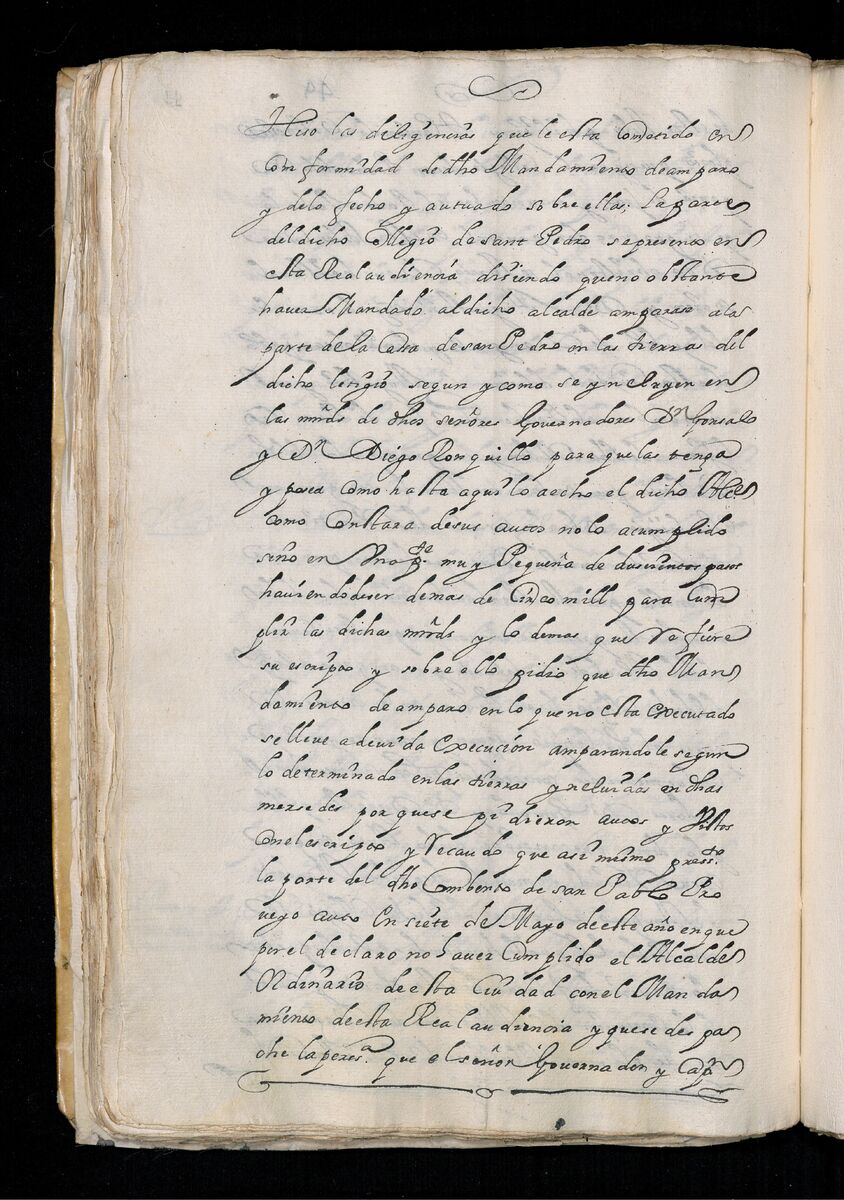 Hiso las diligencias que le esta Cometido en
Conformidad de dho Mandamiento de amparo
y delo fecho y autuado sobre ellas; La parte
del dicho Collegio de sant Pedro se presento en
esta Real audiencia disiendo que no obstante
haver Mandado al dicho alcalde amparase a la
parte de la Casa de san Pedro en las tierras del
dicho letigio segun y como se yncluyen en
las mrds de dhos señores Governadores Dn Gonsalo
y Dn Diego Ronquillo para que las tenga
y posea como hasta aqui lo a echo el dicho Alce
como Constara de sus autos no lo a cumplido
sino en Una pte muy Pequeña de duscientos pasos
haviendo de ser demas de Cinco mill para Cum
plir las dichas mrds y lo demas que Refiere
su escripto y sobre ello pidio que dho Man
damiento de amparo en lo que no esta executado
se lleve a devida execución amparandole segun
lo determinado en las tierras yncluidas en dhas
mersedes por que se pidieron autos y Vistos
Con el escripto y Recaudo que asimismo presto
la parte del dho Combento de san Pablo Pro
veyo auto En siete de Mayo de este año en que
por el declaro no haver Cumplido el Alcalde
Ordinario de esta Ciudad con el Manda
miento de esta Real audiencia y que se despa
che la que el señor Governador y Capn